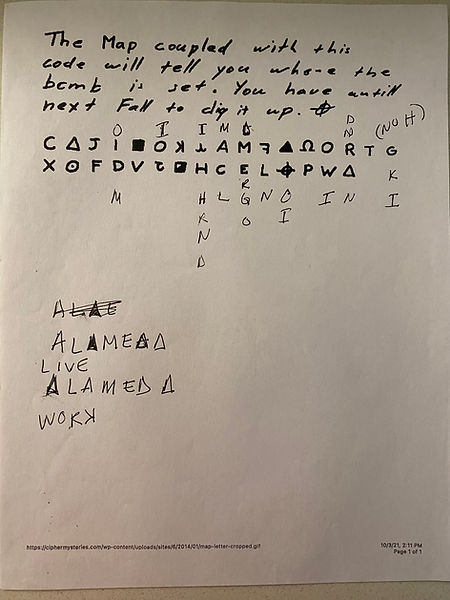 The Map coupled with this
code will tell you where the
bomb is set. You have untill
next Fall to dig it up. ⌖
D
O I I M N (NO H)
C Δ J I ■ O ꓘ ⅄ A M ꟻ ▲ Ω O R T G
X ⊙ F D V H C E L ⌖ P W Δ
R K
M H L G N O I N I
K O I
N
D
ALAMEAD
LIVE
ALAMEDA
WORK
https://ciphermysteries.com/wp-content/uploads/sites/6/2014/01/map-letter-cropped.gif
10/3/21, 2:11 PM
Page 1 of 1